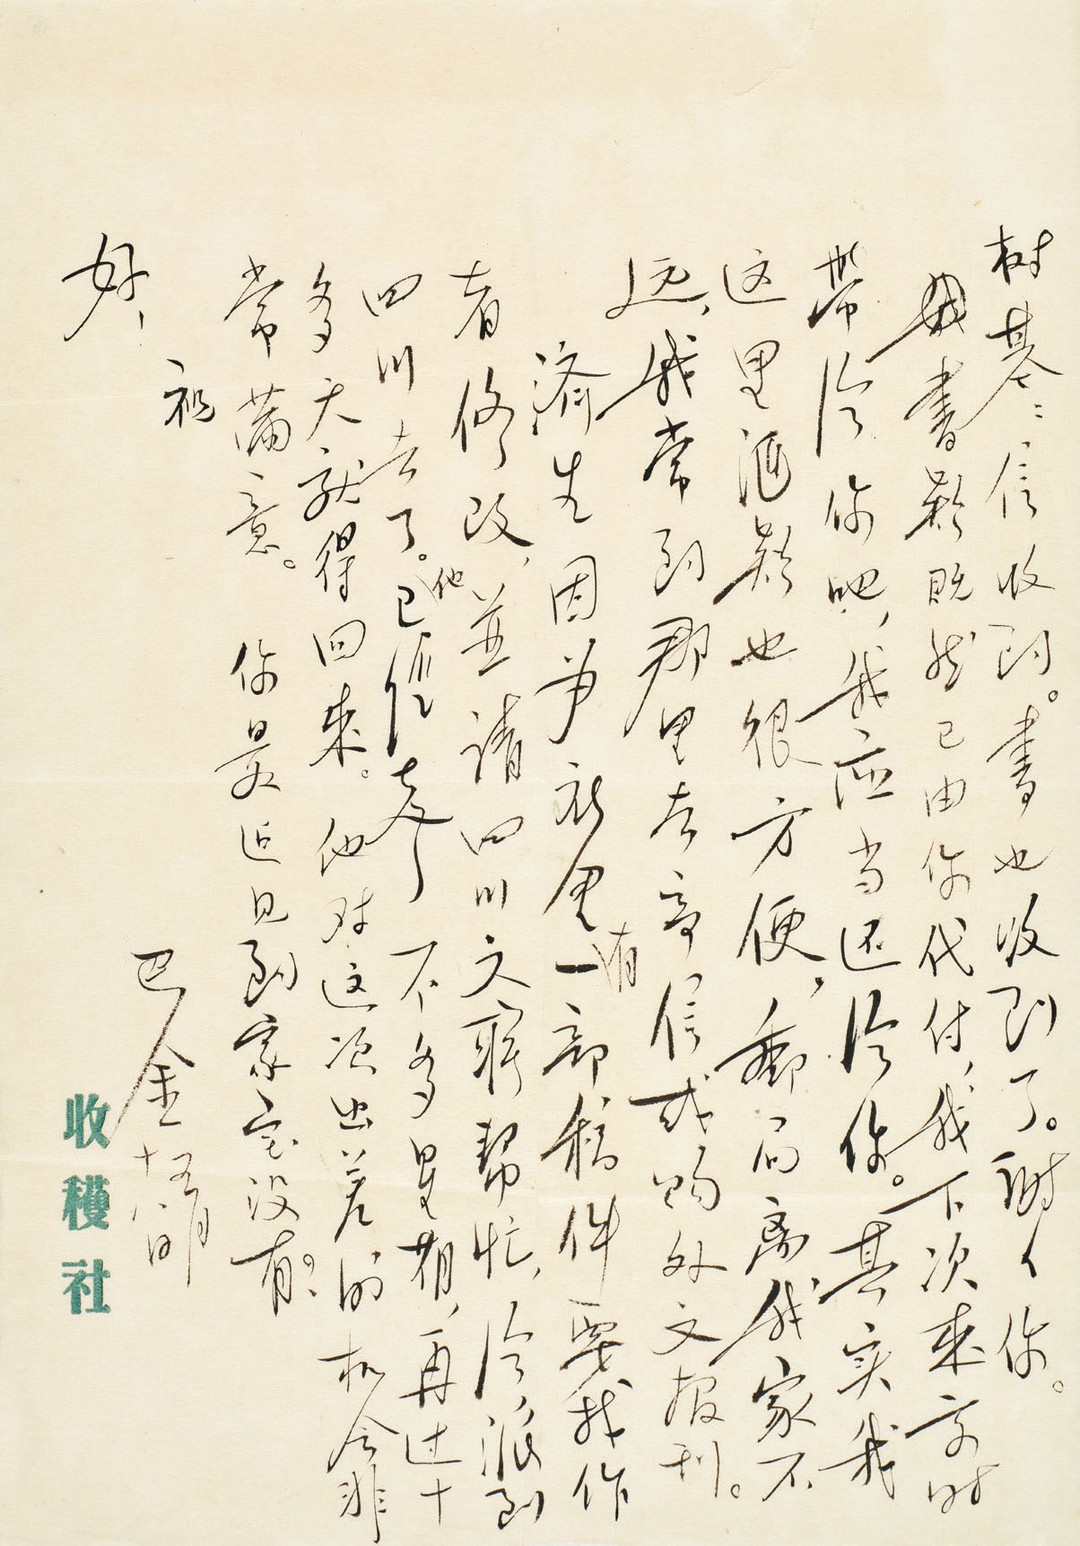 树基：信收到。书也收到了。谢谢你。
书款既然已由你代付，我下次来京时
带给你吧，我应当还给你。其实我
这里汇款也很方便，邮局离我家不
远，我常到那里去寄信或购外文报刊。
济生因为社里有一部稿件要找作
者修改，并请四川文联帮忙，给派到
四川去了。他已经去了不多星期，再过十
多天就得回来。他对这次出差的机会非
常满意。 你最近见到家宝没有？
祝
好！
巴金
收穫社